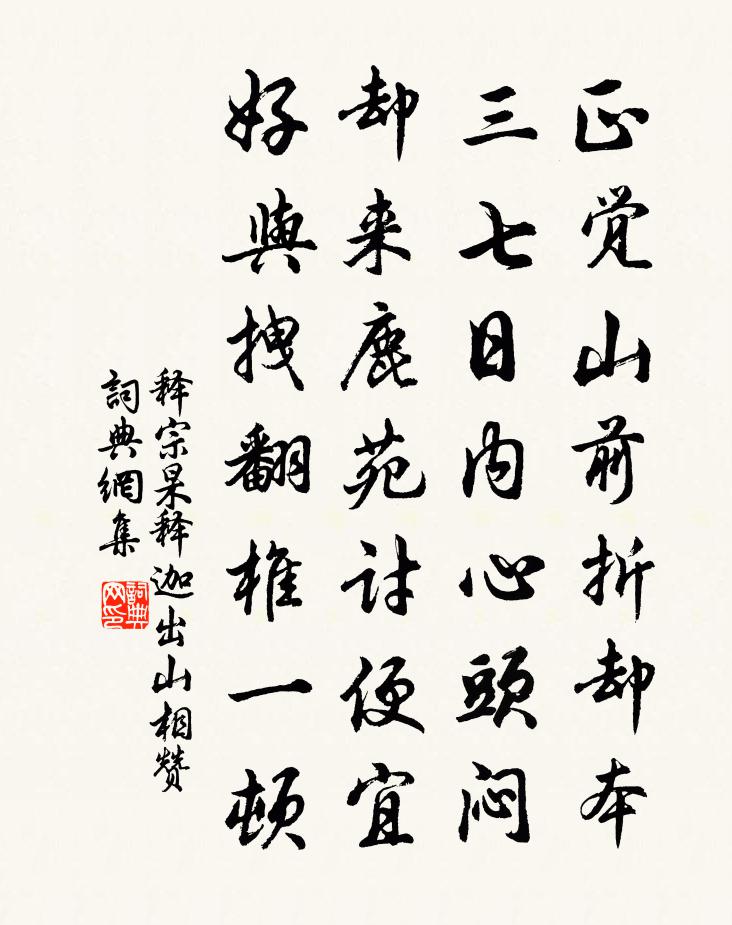 正觉山前折却本
三七日内心頭闷
却来鹿苑討便宜
好與拽翻椎一頓
释宗杲释迦出山相赞
詞典網集
詞典网印